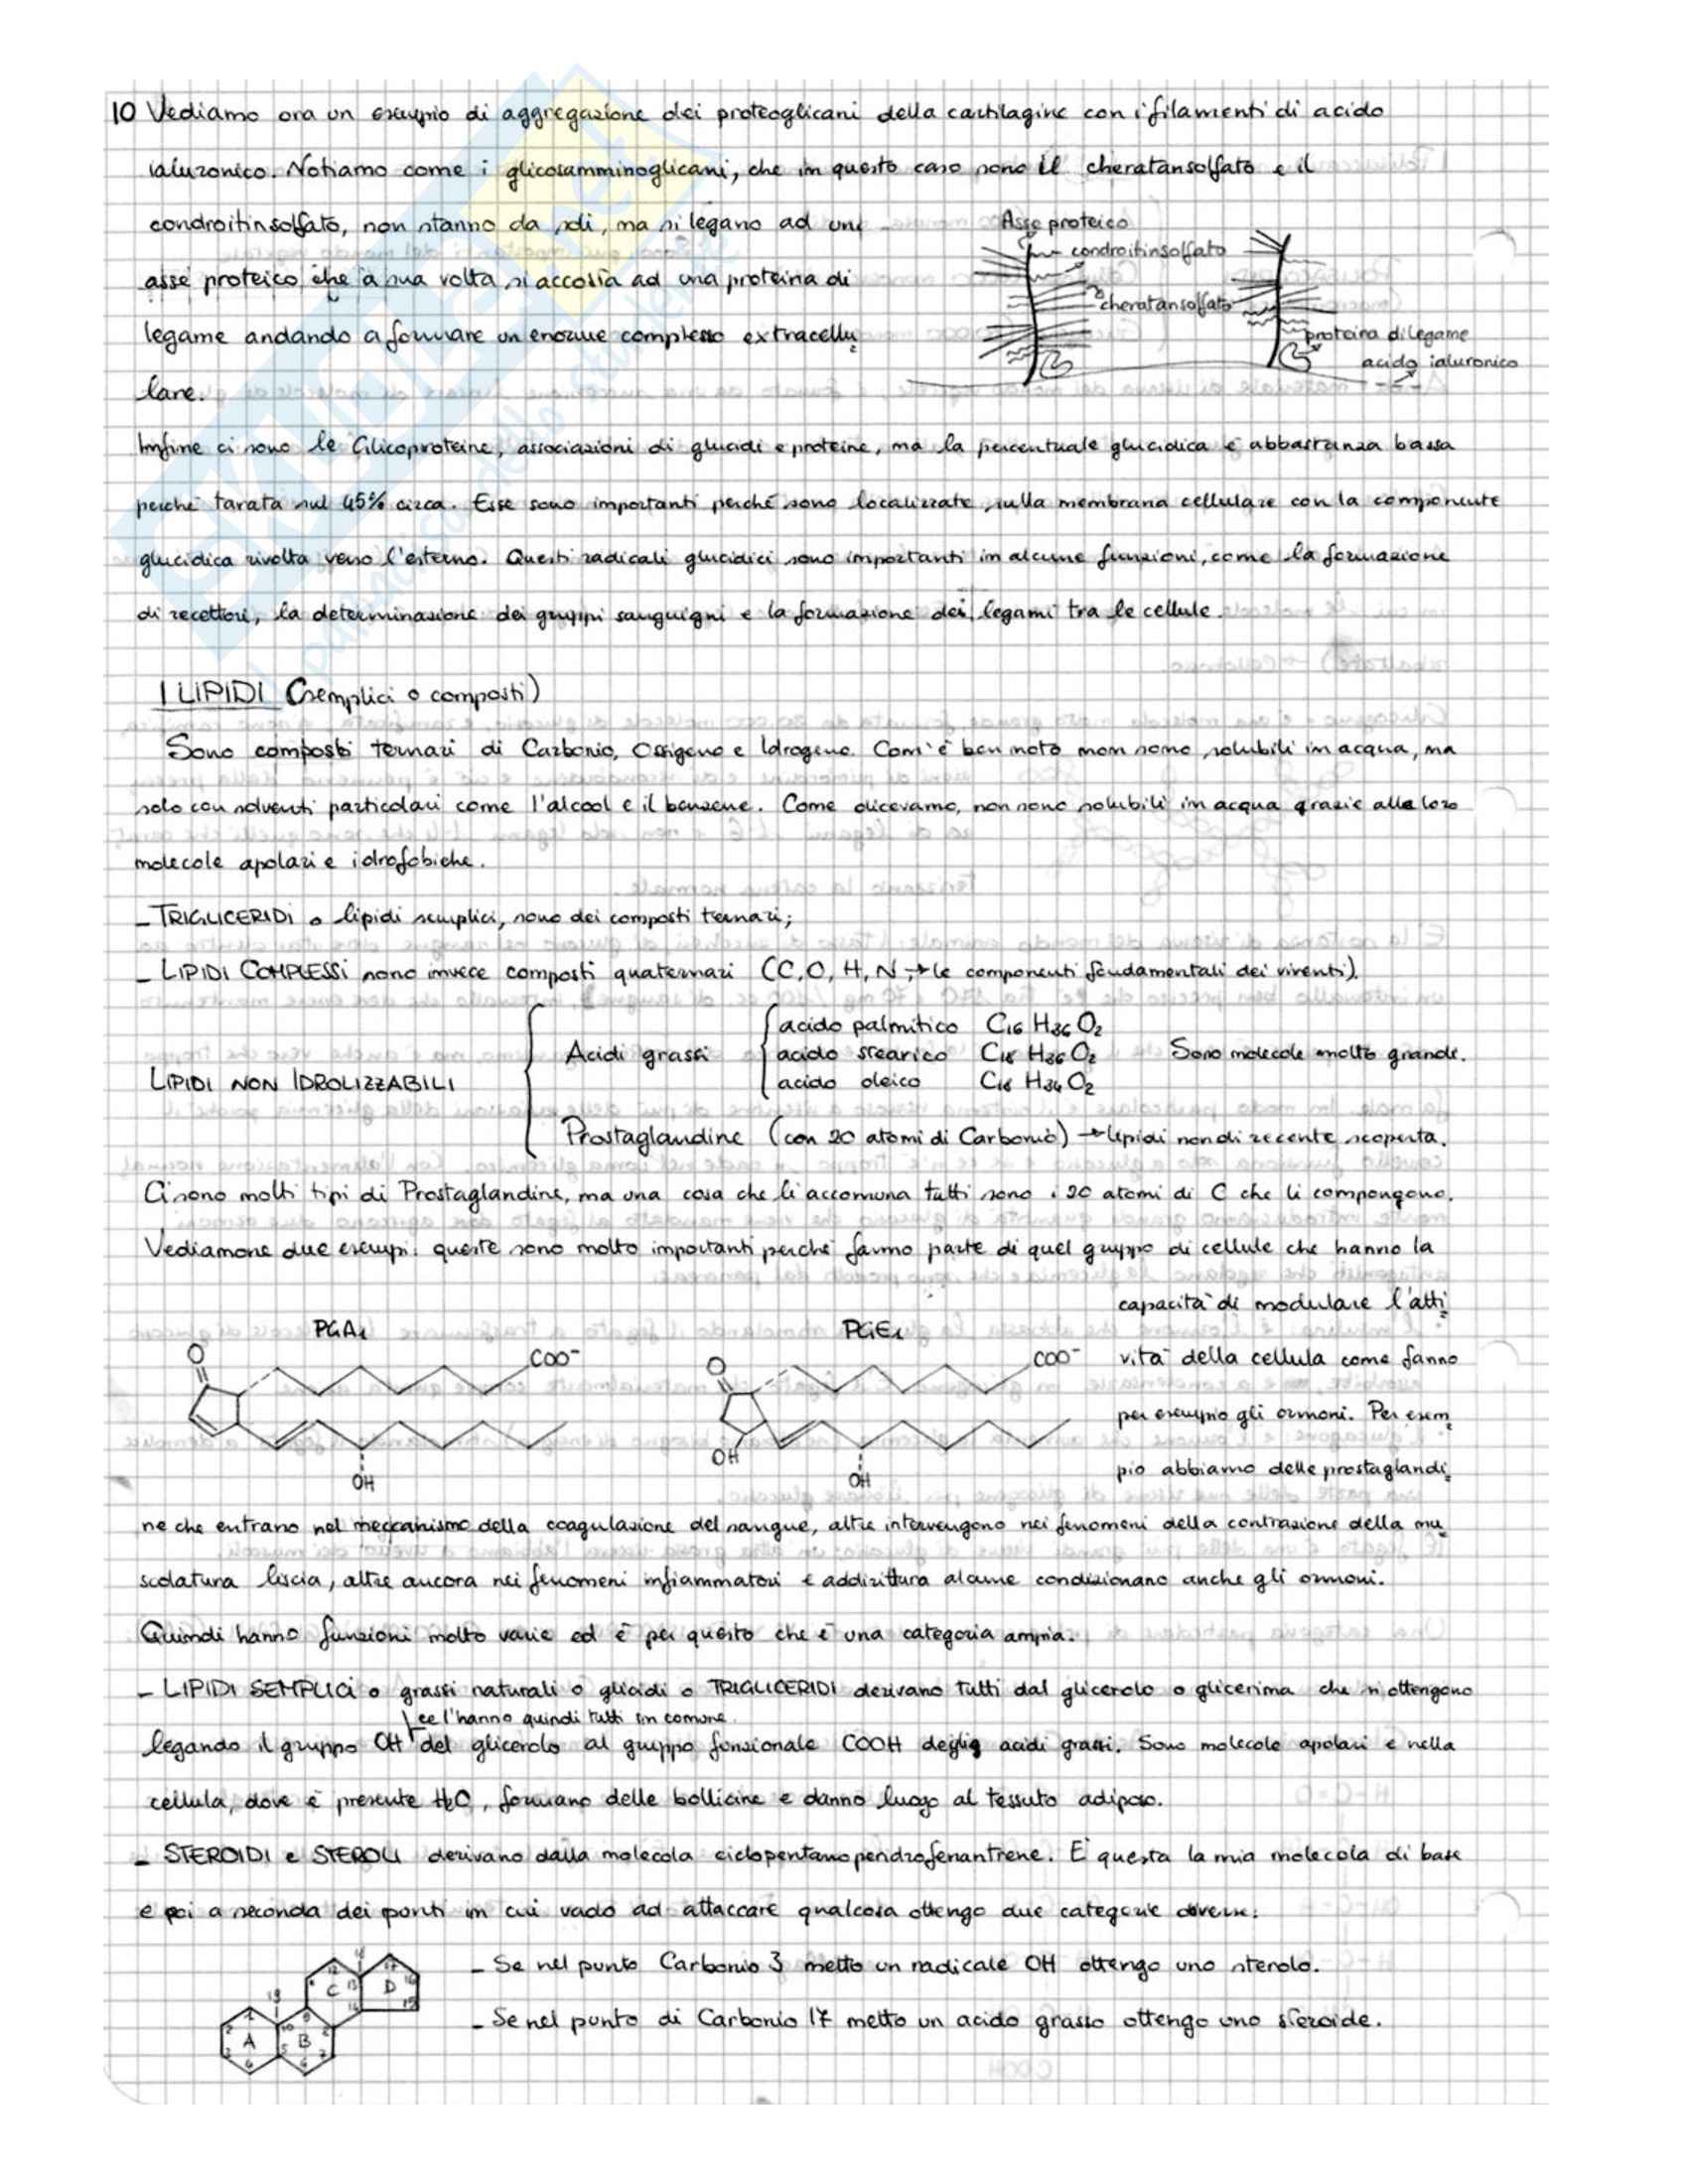 10 Vediamo ora un esempio di aggregazione dei proteoglicani della cartilagine con i filamenti di acido
ialuronico. Notiamo come i glicosamminoglicani, che in questo caso sono il cheratansolfato e il
condroitinsolfato, non stanno da soli, ma si legano ad un
asse proteico che a sua volta si accosta ad una proteina di
legame andando a formare un enorme complesso extracellu
lare.
Asse proteico
condroitinsolfato
cheratansolfato
proteina di legame
acido ialuronico
Infine ci sono le Glicoproteine, associazioni di glucidi e proteine, ma la percentuale glucidica è abbastanza bassa
perché tarata sul 45% circa. Esse sono importanti perché sono localizzate sulla membrana cellulare con la componente
glucidica rivolta verso l'esterno. Questi radicali glucidici sono importanti in alcune funzioni, come la formazione
di recettori, la determinazione dei gruppi sanguigni e la formazione dei legami tra le cellule.
I LIPIDI (semplici o composti)
Sono composti ternari di Carbonio, Ossigeno e Idrogeno. Com'è ben noto non sono solubili in acqua, ma
solo con solventi particolari come l'alcool e il benzene. Come dicevamo, non sono solubili in acqua grazie alle loro
molecole apolari e idrofobiche.
- TRIGLICERIDI o lipidi semplici, sono dei composti ternari;
- LIPIDI COMPLESSI sono invece composti quaternari (C, O, H, N → le componenti fondamentali dei viventi).
LIPIDI NON IDROLIZZABILI
Acidi grassi
acido palmitico C16 H36 O2
acido stearico C18 H36 O2
acido oleico C18 H34 O2
Sono molecole molto grande.
Prostaglandine (con 20 atomi di Carbonio) → lipidi non di recente scoperta.
Ci sono molti tipi di Prostaglandine, ma una cosa che li accomuna tutti sono i 20 atomi di C che li compongono.
Vediamone due esempi: queste sono molto importanti perché fanno parte di quel gruppo di cellule che hanno la
capacità di modulare l'atti
vità della cellula come fanno
per esempio gli ormoni. Per esem
pio abbiamo delle prostaglandi
PGA1
O
COO⁻
OH
PGE1
O
COO⁻
OH
OH
ne che entrano nel meccanismo della coagulazione del sangue, altre intervengono nei fenomeni della contrazione della mu
scolatura liscia, altre ancora nei fenomeni infiammatori e addirittura alcune condizionano anche gli ormoni.
Quindi hanno funzioni molto varie ed è per questo che è una categoria ampia.
- LIPIDI SEMPLICI o grassi naturali o gliceridi o TRIGLICERIDI derivano tutti dal glicerolo o glicerina che si ottengono
ce l'hanno quindi tutti in comune.
legando il gruppo OH del glicerolo al gruppo funzionale COOH degli acidi grassi. Sono molecole apolari e nella
cellula, dove è presente H2O, formano delle bollicine e danno luogo al tessuto adiposo.
- STEROIDI e STEROLI derivano dalla molecola ciclopentanopendrofenantrene. È questa la mia molecola di base
e poi a seconda dei punti in cui vado ad attaccare qualcosa ottengo due categorie diverse:
- Se nel punto Carbonio 3 metto un radicale OH ottengo uno sterolo.
- Se nel punto di Carbonio 17 metto un acido grasso ottengo uno steroide.
A
B
C
D